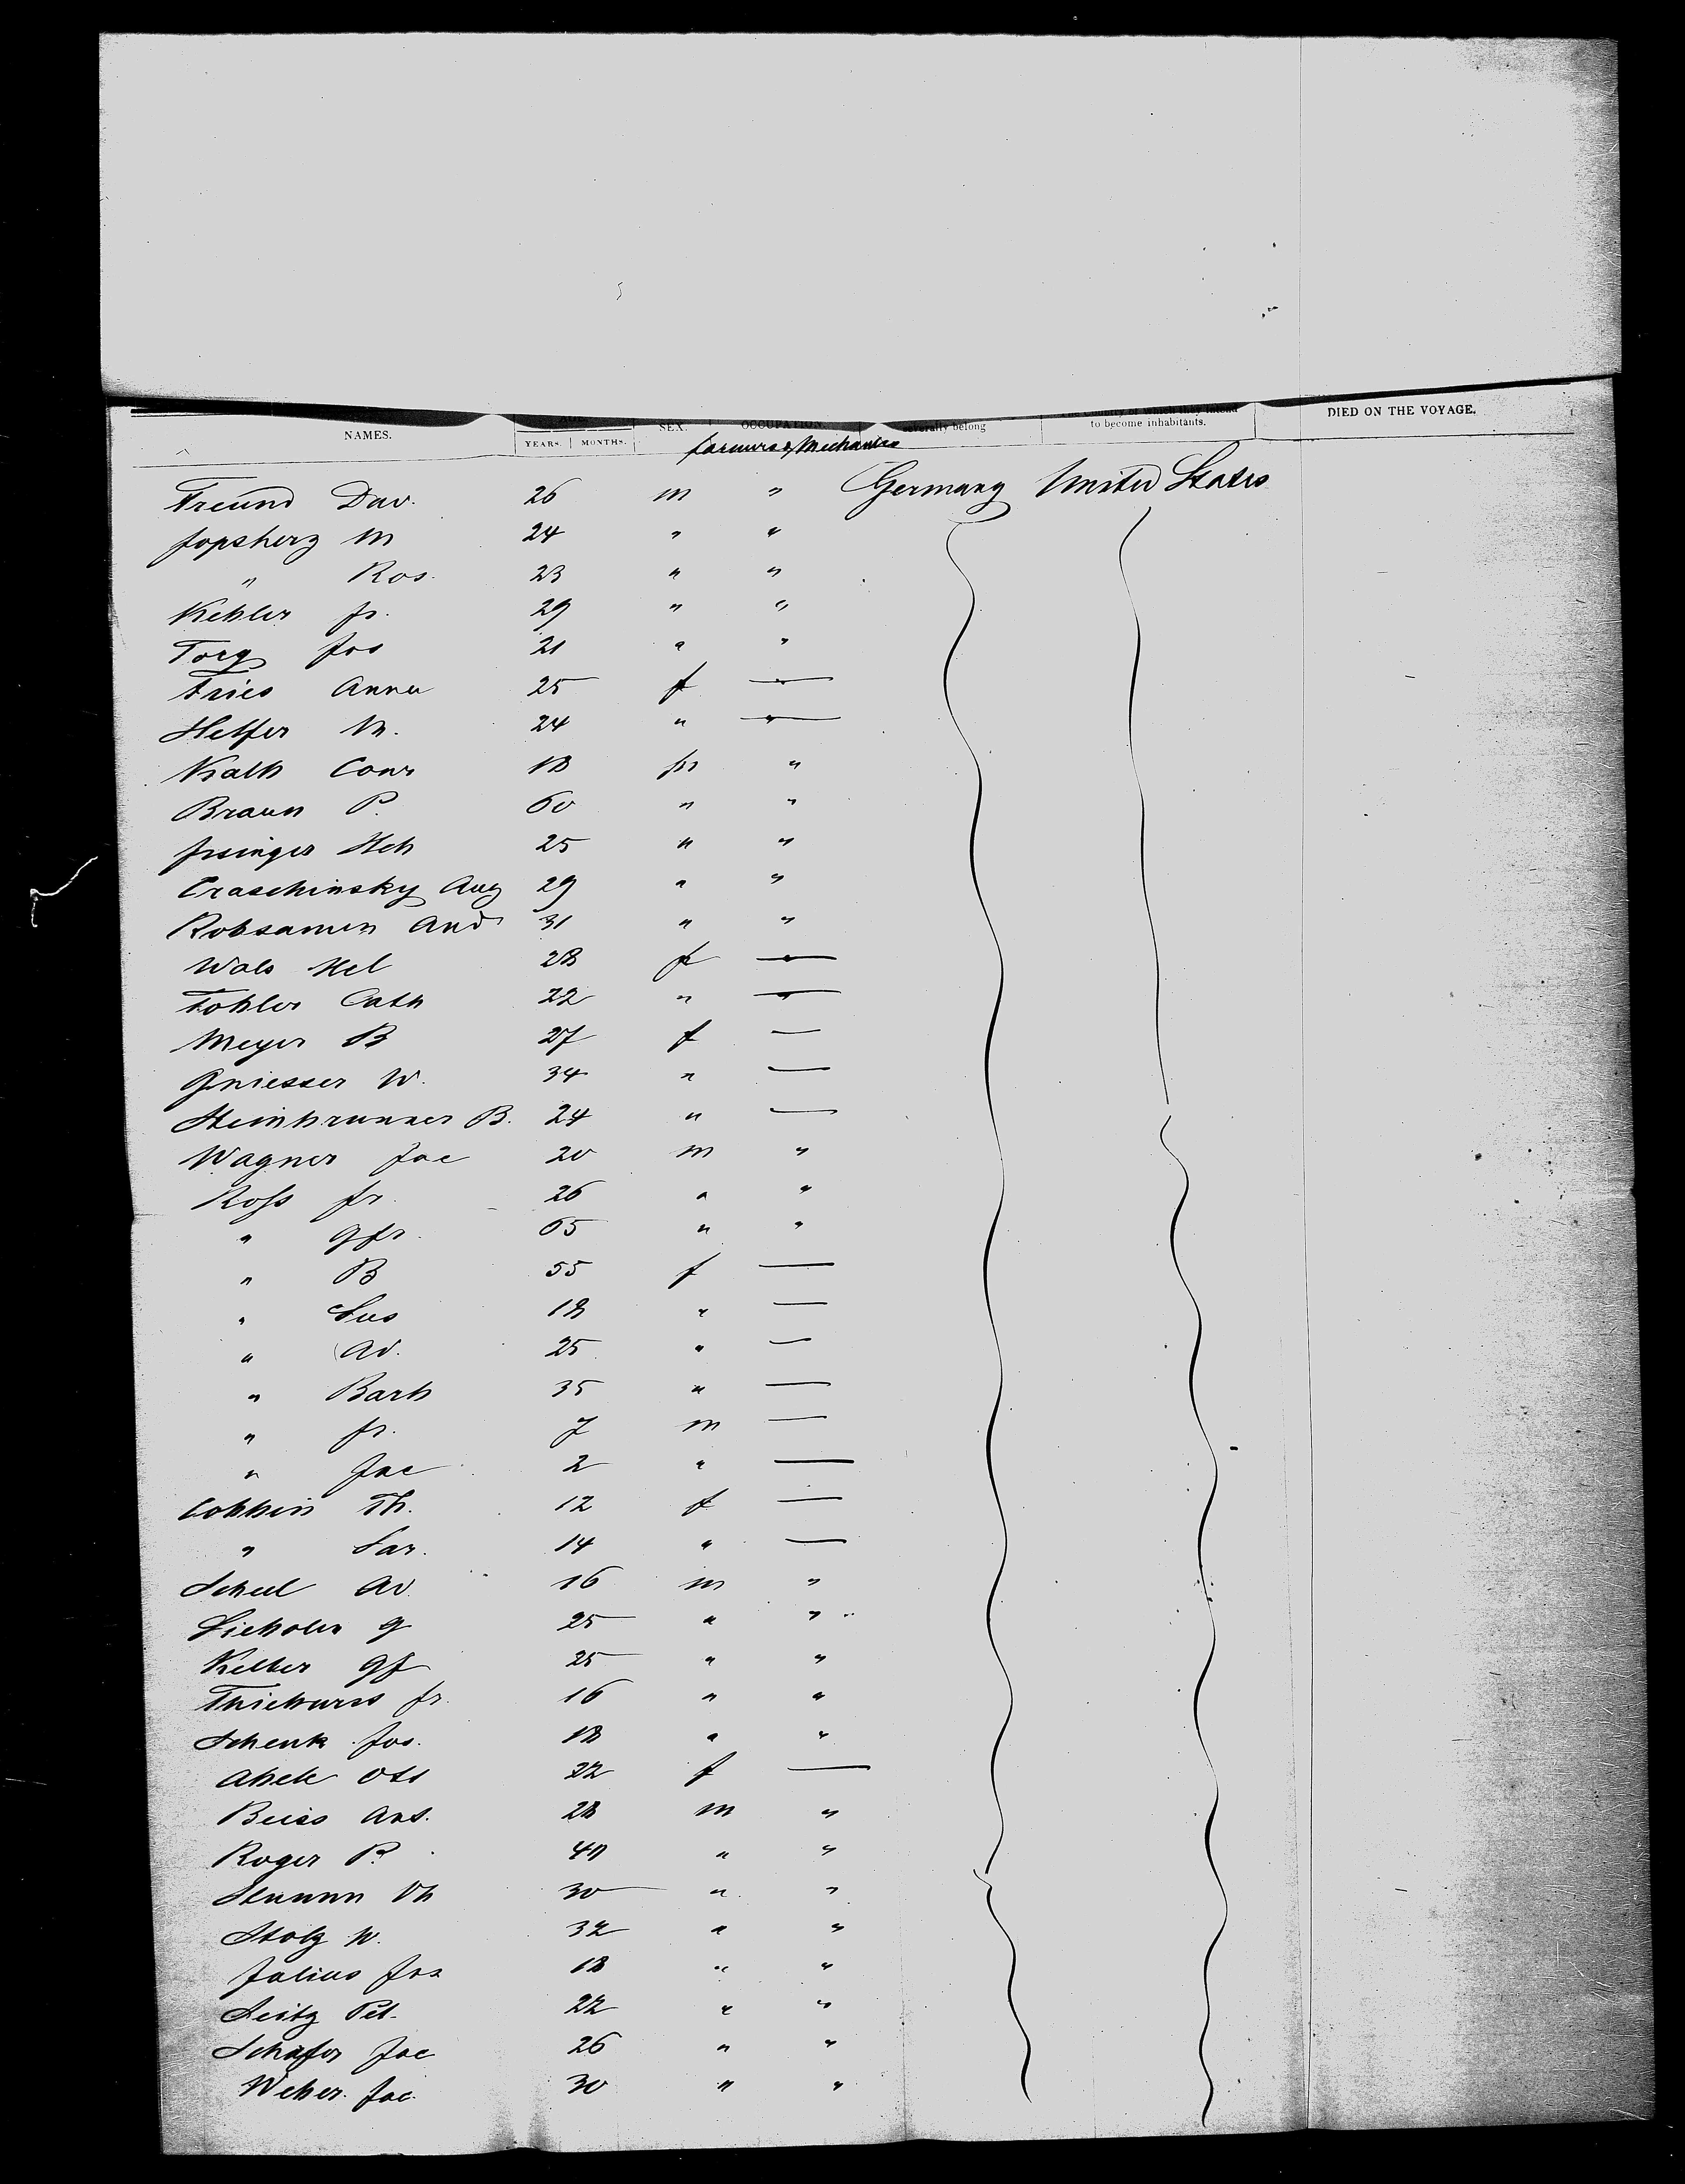 NAMES. YEARS. MONTHS. SEX. OCCUPATION. severally belong to become inhabitants. DIED ON THE VOYAGE.
farmers & Mechanics
Freund Dav. 26 m " Germany United States
M 24 " "
" Ros. 23 " "
Kehler fr. 29 " "
Torg Jos 21 " "
Fries Anna 25 f —
Helfer M. 24 " —
Kalb Conr 18 m "
Braun P. 60 " "
Hch 25 " "
Craschinsky Aug 29 " "
Robsamen And 31 " "
Wals Hel 28 f —
Fohler Cath 22 " —
Meyer B 27 f —
Gniesser W. 34 " —
Steinbrunner B. 24 " —
Wagner Jac 20 m "
Ross fr. 26 " "
" Gfr. 65 " "
" B 55 f —
" Sus 18 " —
" Ad. 25 " —
" Barb 35 " —
" fr. 7 m —
" Jac 2 " —
Th. 12 f —
" Sar. 14 " —
Scheel Ad 16 m "
G 25 " "
Kelber Gf 25 " "
fr. 16 " "
Schenk Jos. 18 " "
Abele Ott 22 f —
Beiss Ant. 28 m "
Roger P. " "
30 " "
Stolz W. 32 " "
Julius Jos 18 " "
Seitz Pet. 22 " "
Schafer Jac 26 " "
Weber Jac. 30 " "